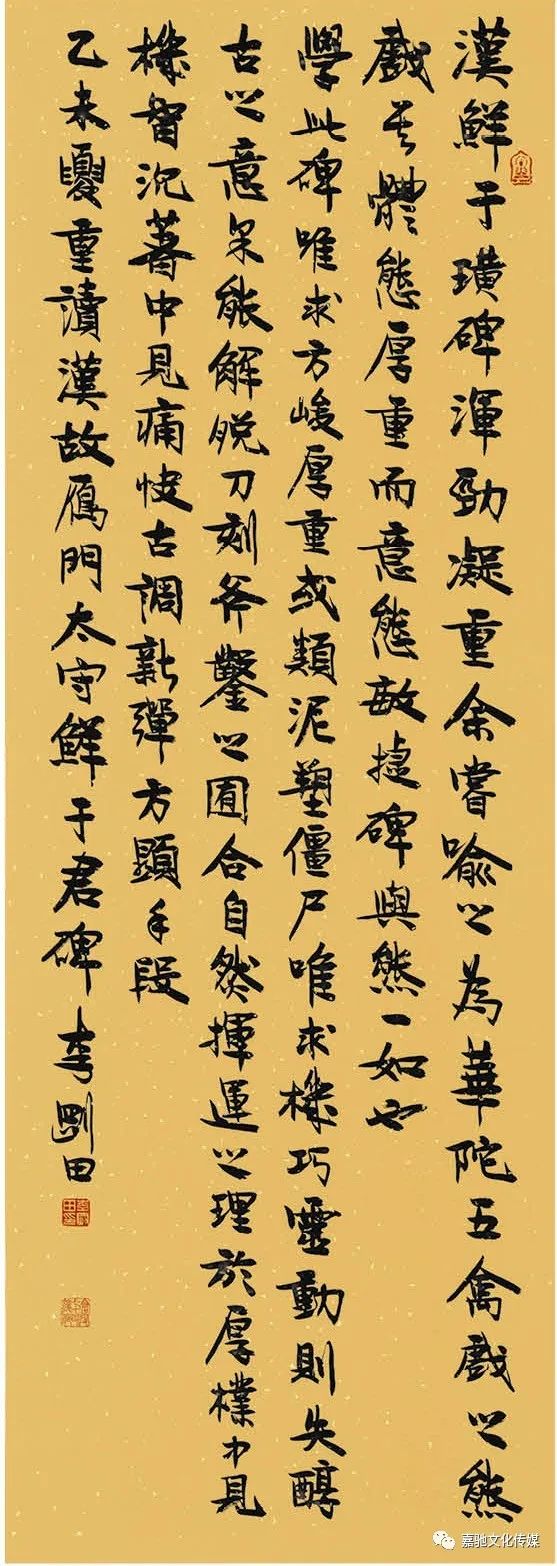 漢鮮于璜碑渾勁凝重余嘗喻之為華陀五禽戲之熊
戲其體態厚重而意態敏捷碑與熊一如也
學此碑唯求方峻厚重或類泥塑僵尸唯求機巧靈動則失醇
古之意若能解脫刀刻斧鑿之囿合自然揮運之理於厚樸中見
機智沉著中見痛快古調新彈方顯手段
乙未夏重讀漢故雁門太守鮮于君碑 李剛田
嘉驰文化传媒